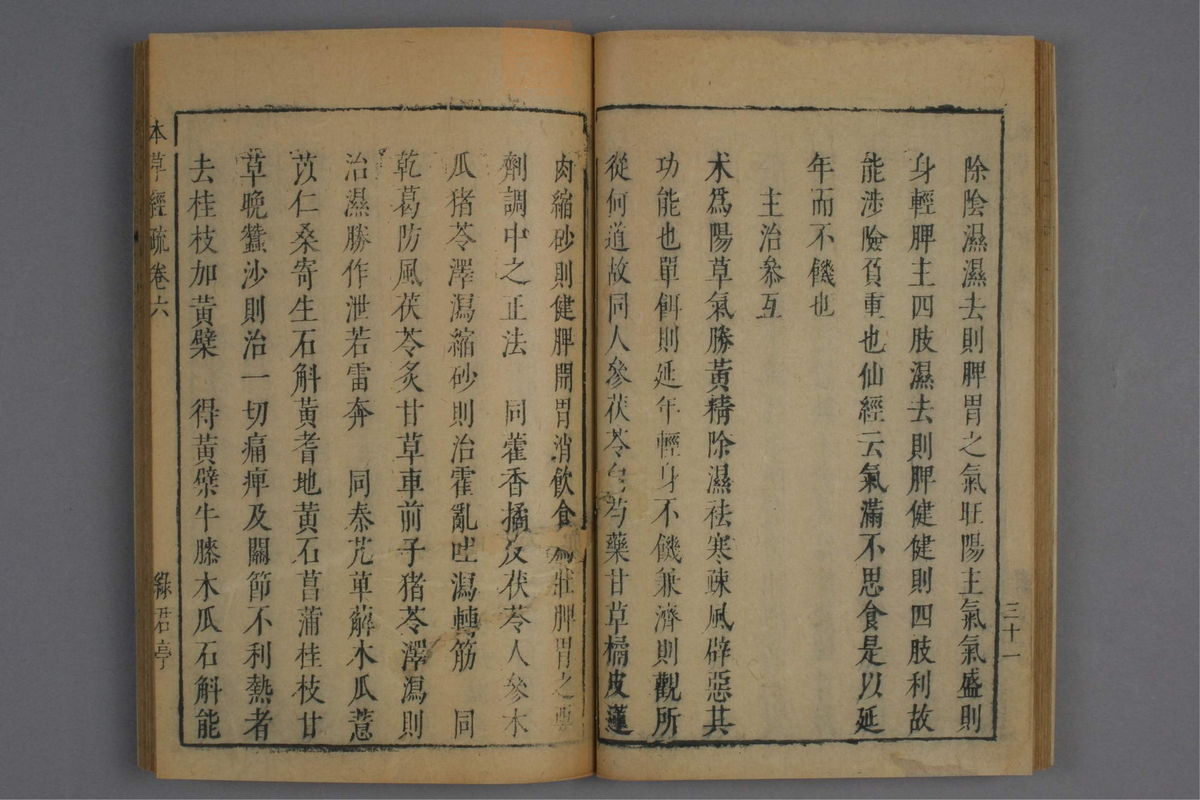 三十一
除陰濕濕去則脾胃之氣旺陽主氣氣盛則
身輕脾主四肢濕去則脾健健則四肢利故
能涉險負重也仙經云氣滿不思食是以延
年而不饑也
主治參互
术爲陽草氣勝黃精除濕祛寒疎風辟惡其
功能也單餌則延年輕身不饑兼濟則觀所
從何道故同人參茯苓白芍藥甘草橘皮蓮
肉縮砂則健脾開胃消飲食爲壯脾胃之要
劑調中之正法 同藿香橘皮茯苓人參木
瓜猪苓澤瀉縮砂則治霍亂吐瀉轉筋 同
乾葛防風茯苓炙甘草車前子猪苓澤瀉則
治濕勝作泄若雷奔 同秦艽萆薢木瓜薏
苡仁桑寄生石斛黃耆地黃石菖蒲桂枝甘
草晚蠶沙則治一切痛痺及關節不利熱者
去桂枝加黃檗 得黃檗牛膝木瓜石斛能
本草經疏卷六
綠君亭